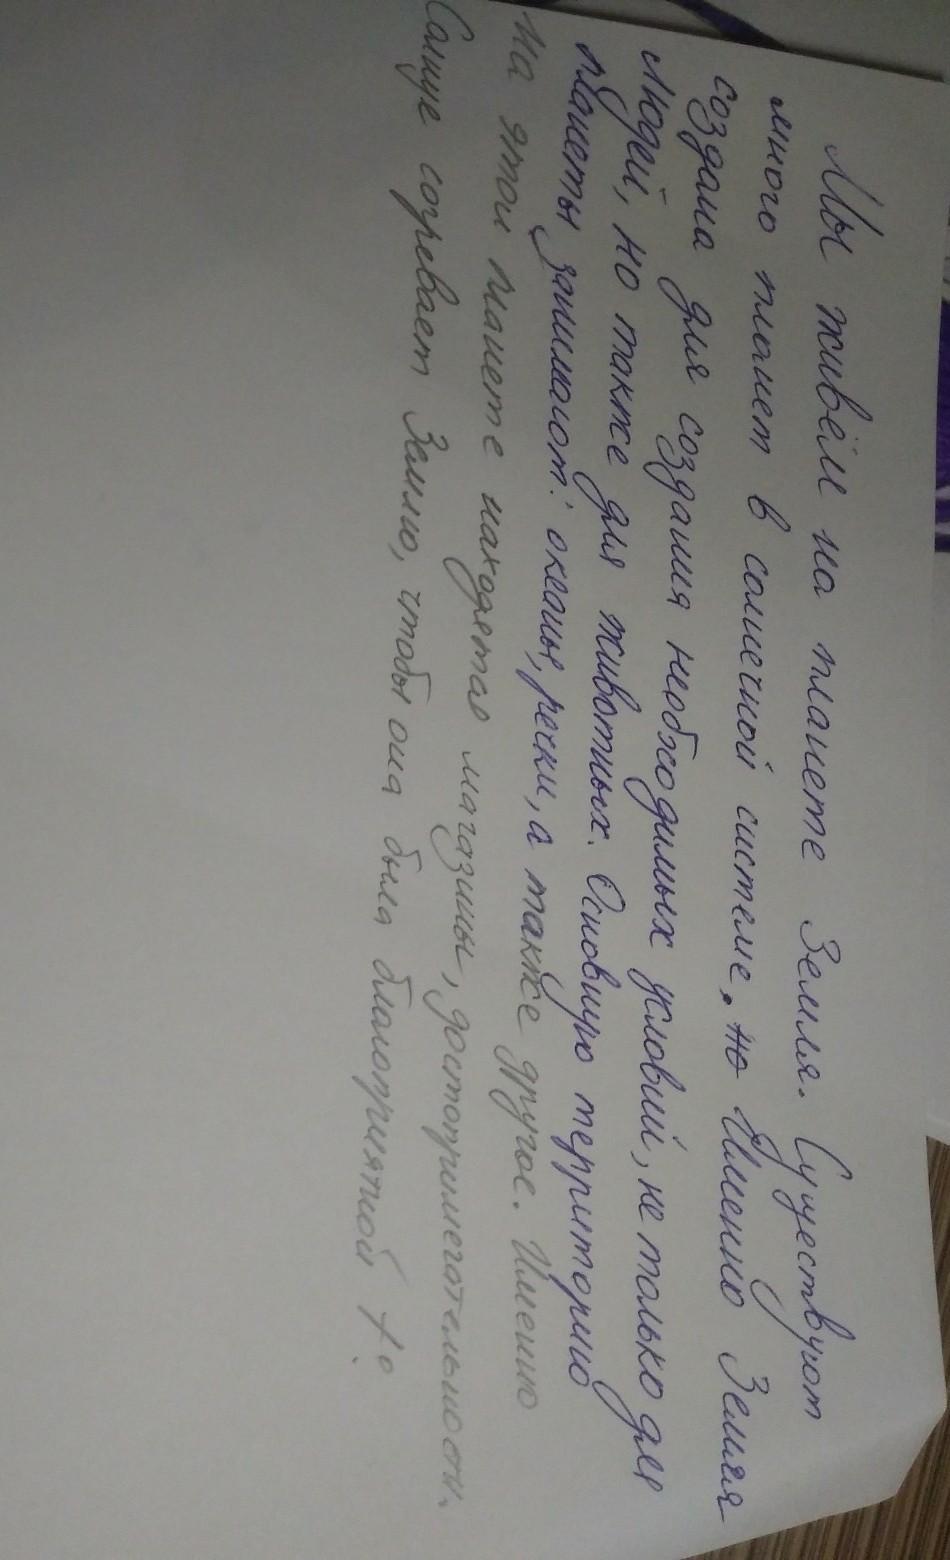 Мы живём на планете Земля. Существуют
много планет в солнечной системе. но Именно Земля
создана для создания необходимых условий, не только для
людей, но также для животных. Основную территорию
планеты занимают: океаны, речки, а также другое. Именно
на этой планете находятся магазины, достопримечательности.
Солнце согревает Землю, чтобы она была благоприятной t°.